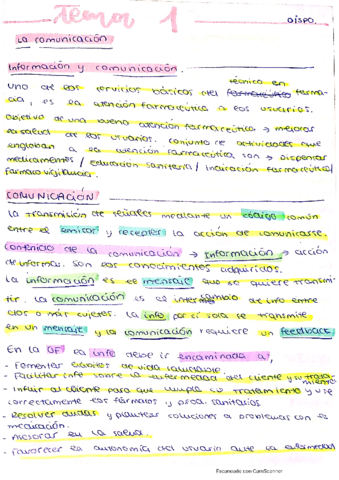 Tema 1
DISPO.
La comunicación
Información y comunicación.
Uno de los servicios básicos del farmacéutico técnico en farma-
cia, es la atención farmacéutica a los usuarios.
Objetivo de una buena atención farmacéutica → mejorar
la salud de los usuarios. Conjunto de actividades que
engloban a la atención farmacéutica son → Dispensar
medicamentos / educación sanitaria / indicación farmacéutica /
farmacovigilancia.
COMUNICACIÓN
La transmisión de señales mediante un código común
entre el emisor y receptor la acción de comunicarse.
Contenido de la comunicación → Información → acción
de informar. Son los conocimientos adquiridos.
La información es el mensaje que se quiere transmi-
tir. La comunicación es el intercambio de info entre
dos o más sujetos. La info por si sola se transmite
en un mensaje y la comunicación requiere un feedback
En la OF la info debe ir encaminada a,
- Fomentar hábitos de vida saludable.
- Facilitar info sobre la enfermedad del cliente y su trata-
miento
- Influir al cliente para que cumpla su tratamiento y use
correctamente los fármacos y prod. sanitarios
- Resolver dudas y plantear soluciones a problemas con la
medicación.
- Asesorar en la salud.
- Favorecer la autonomía del usuario ante la enfermedad
Escaneado con CamScanner